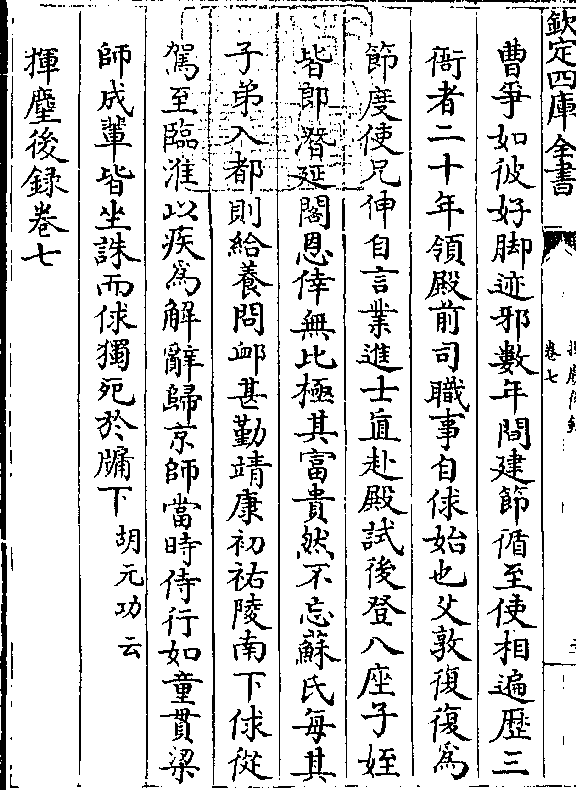 欽定四庫全書
卷七
曹爭如彼好脚迹邪數年間建節循至使相遍歴三
衙者二十年領殿前司職事自俅始也父敦復復為
節度使兄伸自言業進士直赴殿試後登八座子姪
皆郎潛延閣恩倖無比極其富貴然不忘蘇氏每其
子弟入都則給養問䘏甚勤靖康初祐陵南下俅從
駕至臨淮以疾為解辭歸京師當時侍行如童貫梁
師成輩皆坐誅而俅獨死於牖下胡元功云
揮麈後録卷七